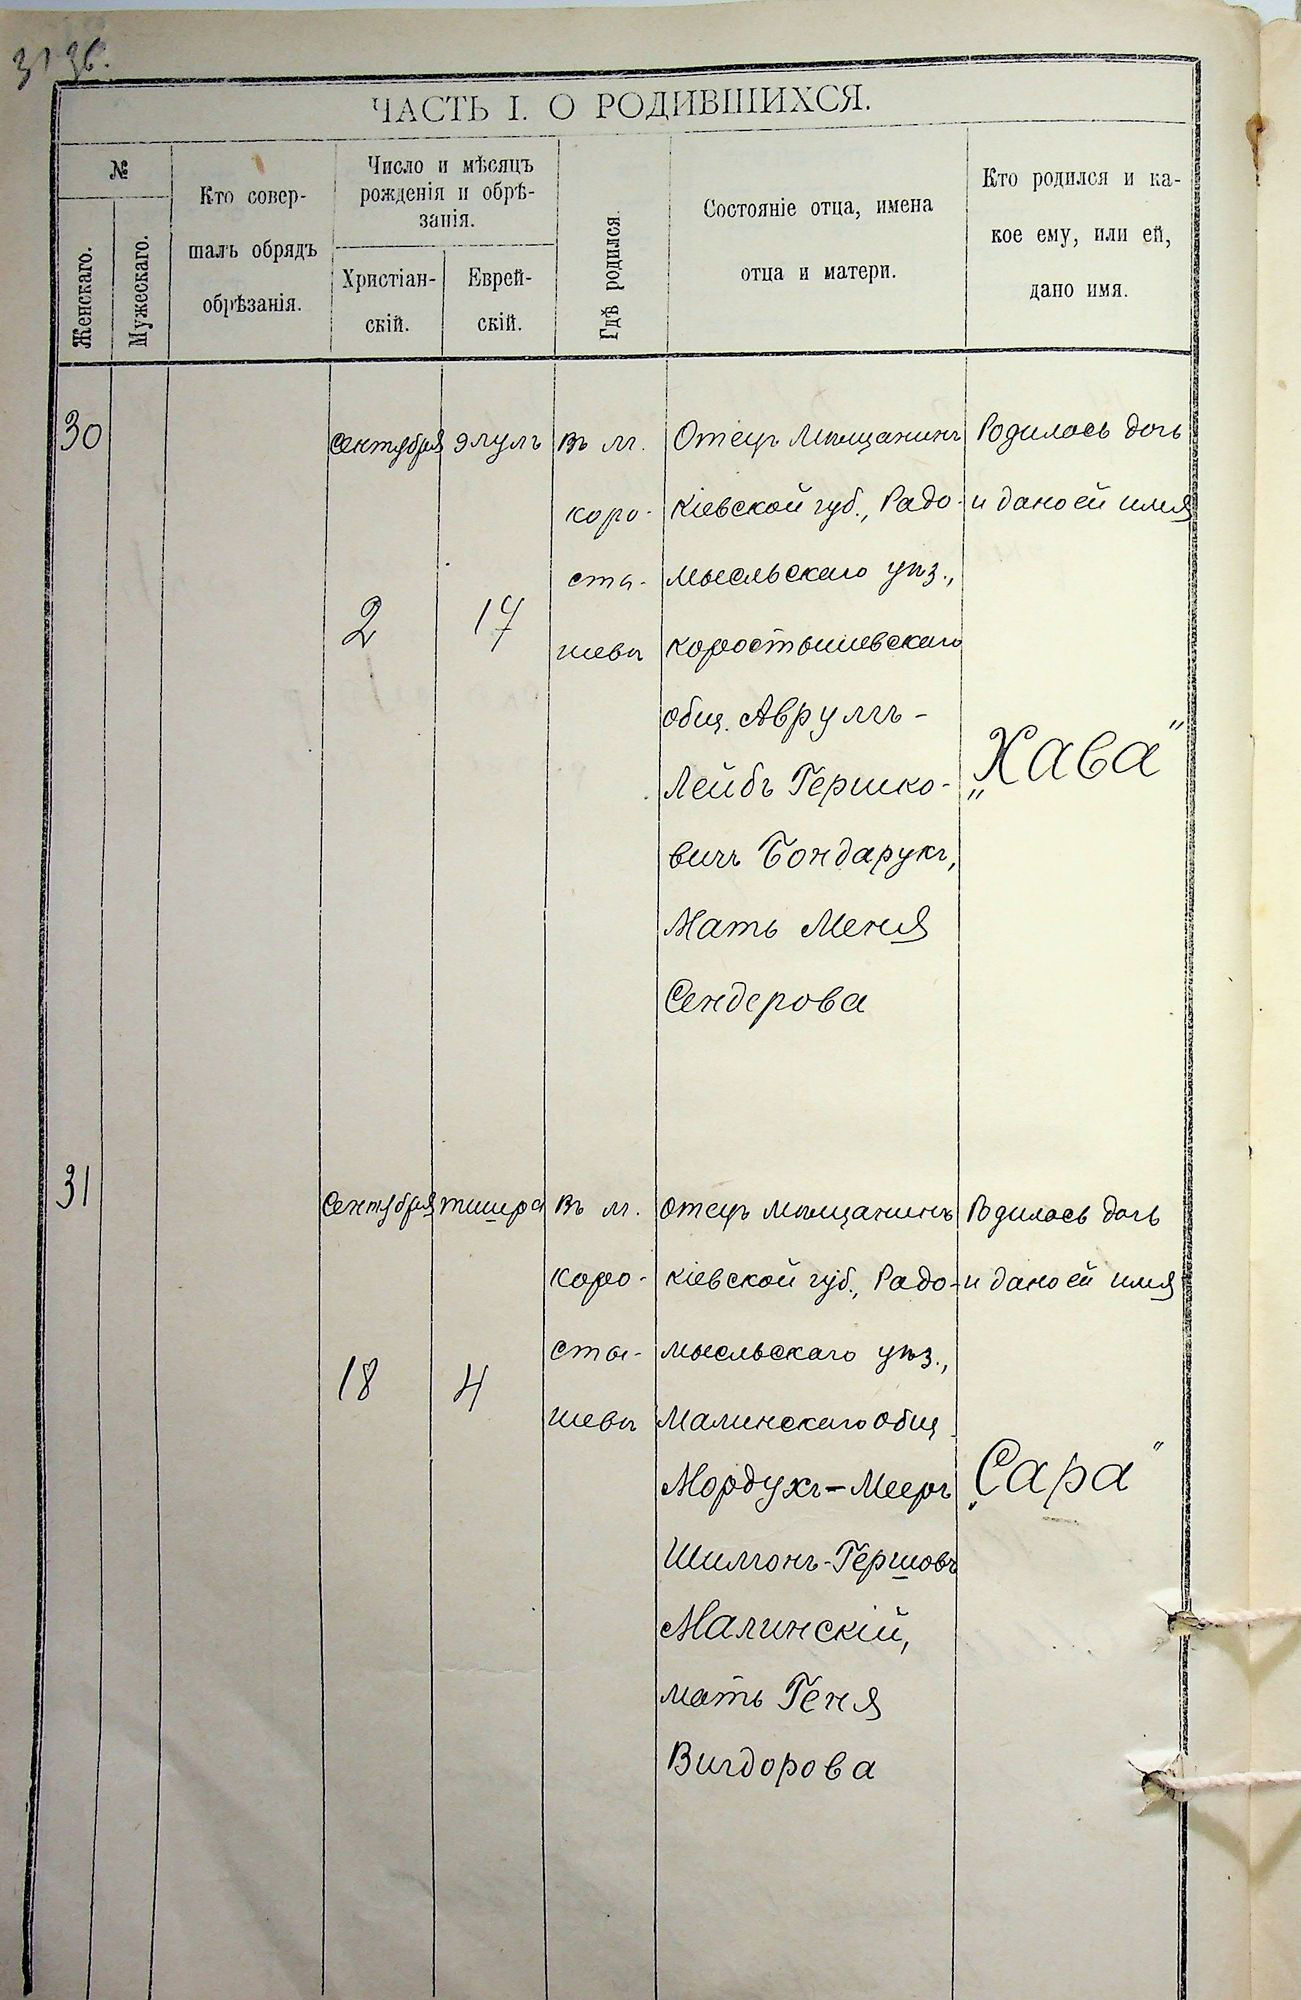 31 зв.
ЧАСТЬ I. О РОДИВШИХСЯ.
№
Женскаго.
Мужескаго.
Кто совер-
шалъ обрядъ
обрѣзанія.
Число и мѣсяцъ
рожденія и обрѣ-
занія.
Христіан-
скій.
Еврей-
скій.
Гдѣ родился.
Состояніе отца, имена
отца и матери.
Кто родился и ка-
кое ему, или ей,
дано имя.
30
Сентября
2
элулъ
17
Въ м.
Коро-
сты-
шевѣ
Отецъ мѣщанинъ
Кіевской губ., Радо-
мысльскаго уѣз.,
Коростышевскаго
общ. Аврумъ-
Лейбъ Гершко-
вичъ Бондарукъ,
Мать Меня
Сендерова
Родилась дочь
и дано ей имя
„Хава"
31
Сентября
18
тишра
4
Въ м.
Коро-
сты-
шевѣ
Отецъ мѣщанинъ
Кіевской губ., Радо-
мысльскаго уѣз.,
Малинскаго общ.
Мордухъ-Мееръ
Шимонъ-Гершовъ
Малинскій,
мать Геня
Вигдорова
Родилась дочь
и дано ей имя
„Сара"